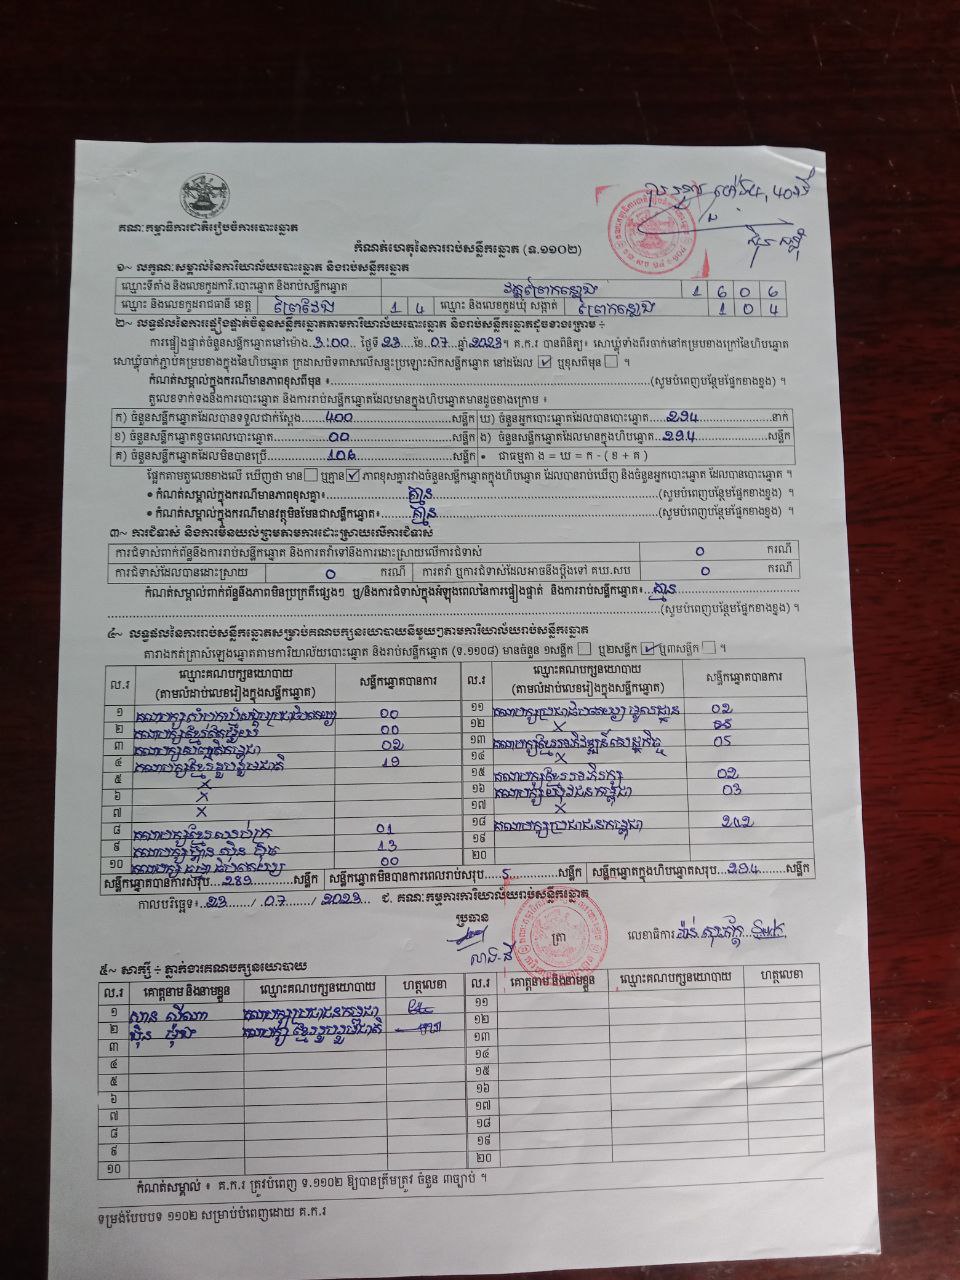 គណៈកម្មាធិការជាតិរៀបចំការបោះឆ្នោត
កំណត់ហេតុនៃការរាប់សន្លឹកឆ្នោត (ទ.១១០២)
១~ លក្ខណៈសម្គាល់នៃការិយាល័យបោះឆ្នោត និងរាប់សន្លឹកឆ្នោត
ឈ្មោះទីតាំង និងលេខកូដការិ.បោះឆ្នោត និងរាប់សន្លឹកឆ្នោត វត្តព្រែកតន្លោង 1 6 0 6
ឈ្មោះ និងលេខកូដរាជធានី ខេត្ត ព្រៃវែង 1 4 ឈ្មោះ និងលេខកូដឃុំ សង្កាត់ 1 0 4
២~ លទ្ធផលនៃការផ្ទៀងផ្ទាត់ចំនួនសន្លឹកឆ្នោតតាមការិយាល័យបោះឆ្នោត និងរាប់សន្លឹកឆ្នោតដូចខាងក្រោម ÷
ការផ្ទៀងផ្ទាត់ចំនួនសន្លឹកឆ្នោតនៅម៉ោង 3:00 ថ្ងៃទី 23 ខែ 07 ឆ្នាំ 2023។ គ.ក.រ បានពិនិត្យ៖ សោឃ្លុំទាំងពីរចាក់នៅគម្របខាងក្រៅនៃហិបឆ្នោត
សោឃ្លុំចាក់ភ្ជាប់គម្របខាងក្នុងនៃហិបឆ្នោត ក្រដាសបិទពាសលើសន្ទះប្រឡោះសិកសន្លឹកឆ្នោត នៅដដែល ☑ ឬខុសពីមុន ☐ ។
កំណត់សម្គាល់ក្នុងករណីមានភាពខុសពីមុន ៖ (សូមបំពេញបន្ថែមផ្នែកខាងខ្នង) ។
តួលេខទាក់ទងនឹងការបោះឆ្នោត និងការរាប់សន្លឹកឆ្នោតដែលមានក្នុងហិបឆ្នោតមានដូចខាងក្រោម ៖
ក) ចំនួនសន្លឹកឆ្នោតដែលបានទទួលជាក់ស្តែង 400 សន្លឹក ឃ) ចំនួនអ្នកបោះឆ្នោតដែលបានបោះឆ្នោត 294 នាក់
ខ) ចំនួនសន្លឹកឆ្នោតខូចពេលបោះឆ្នោត 00 សន្លឹក ង) ចំនួនសន្លឹកឆ្នោតដែលមានក្នុងហិបឆ្នោត 294 សន្លឹក
គ) ចំនួនសន្លឹកឆ្នោតដែលមិនបានប្រើ 106 សន្លឹក • ជាធម្មតា ង = ឃ = ក - ( ខ + គ )
ផ្អែកតាមតួលេខខាងលើ ឃើញថា មាន ☐ ឬគ្មាន ☑ ភាពខុសគ្នារវាងចំនួនសន្លឹកឆ្នោតក្នុងហិបឆ្នោត ដែលបានរាប់ឃើញ និងចំនួនអ្នកបោះឆ្នោត ដែលបានបោះឆ្នោត ។
• កំណត់សម្គាល់ក្នុងករណីមានភាពខុសគ្នា៖ គ្មាន (សូមបំពេញបន្ថែមផ្នែកខាងខ្នង) ។
• កំណត់សម្គាល់ក្នុងករណីមានវត្ថុមិនមែនជាសន្លឹកឆ្នោត៖ គ្មាន (សូមបំពេញបន្ថែមផ្នែកខាងខ្នង) ។
៣~ ការជំទាស់ និងការមិនយល់ព្រមតាមការដោះស្រាយលើការជំទាស់
ការជំទាស់ពាក់ព័ន្ធនឹងការរាប់សន្លឹកឆ្នោត និងការតវ៉ាទៅនឹងការដោះស្រាយលើការជំទាស់ 0 ករណី
ការជំទាស់ដែលបានដោះស្រាយ 0 ករណី ការតវ៉ា ឬការជំទាស់ដែលអាចនឹងប្តឹងទៅ គឃ.សប 0 ករណី
កំណត់សម្គាល់ពាក់ព័ន្ធនឹងភាពមិនប្រក្រតីផ្សេងៗ ឬ/និងការជំទាស់ក្នុងអំឡុងពេលនៃការផ្ទៀងផ្ទាត់ និងការរាប់សន្លឹកឆ្នោត៖ គ្មាន
(សូមបំពេញបន្ថែមផ្នែកខាងខ្នង) ។
៤~ លទ្ធផលនៃការរាប់សន្លឹកឆ្នោតសម្រាប់គណបក្សនយោបាយនីមួយៗតាមការិយាល័យរាប់សន្លឹកឆ្នោត
តារាងកត់គ្រាស់ឡេងឆ្នោតតាមការិយាល័យបោះឆ្នោត និងរាប់សន្លឹកឆ្នោត (ទ.១១០៨) មានចំនួន ១សន្លឹក ☐ ឬ២សន្លឹក ☑ ឬ៣សន្លឹក ☐ ។
ល.រ ឈ្មោះគណបក្សនយោបាយ (តាមលំដាប់លេខរៀងក្នុងសន្លឹកឆ្នោត) សន្លឹកឆ្នោតបានការ ល.រ ឈ្មោះគណបក្សនយោបាយ (តាមលំដាប់លេខរៀងក្នុងសន្លឹកឆ្នោត) សន្លឹកឆ្នោតបានការ
១ 00 ១១ 02
២ 00 ១២ X
៣ 02 ១៣ គណបក្សខ្មែរអភិវឌ្ឍន៍សេដ្ឋកិច្ច 05
៤ គណបក្សខ្មែររួបរួមជាតិ 19 ១៤ X
៥ X ១៥ គណបក្សខ្មែរអភិរក្ស 02
៦ X ១៦ គណបក្សយុវជនកម្ពុជា 03
៧ X ១៧ X
៨ 01 ១៨ គណបក្សប្រជាជនកម្ពុជា 242
៩ គណបក្សហ្វ៊ុនស៊ិនប៉ិច 13 ១៩
១០ 00 ២០
សន្លឹកឆ្នោតបានការសរុប 289 សន្លឹក សន្លឹកឆ្នោតមិនបានការពេលរាប់សរុប 5 សន្លឹក សន្លឹកឆ្នោតក្នុងហិបឆ្នោតសរុប 294 សន្លឹក
កាលបរិច្ឆេទ៖ 23 / 07 / 2023 ជ. គណៈកម្មការការិយាល័យរាប់សន្លឹកឆ្នោត
ប្រធាន ត្រា លេខាធិការ
៥~ សាក្សី ÷ ភ្នាក់ងារគណបក្សនយោបាយ
ល.រ គោត្តនាម និងនាមខ្លួន ឈ្មោះគណបក្សនយោបាយ ហត្ថលេខា ល.រ គោត្តនាម និងនាមខ្លួន ឈ្មោះគណបក្សនយោបាយ ហត្ថលេខា
១ សាន សីណា គណបក្សប្រជាជនកម្ពុជា ១១
២ គណបក្សខ្មែររួបរួមជាតិ ១២
៣ ១៣
៤ ១៤
៥ ១៥
៦ ១៦
៧ ១៧
៨ ១៨
៩ ១៩
១០ ២០
កំណត់សម្គាល់ ៖ គ.ក.រ ត្រូវបំពេញ ទ.១១០២ ឱ្យបានត្រឹមត្រូវ ចំនួន ៣ច្បាប់ ។
ទម្រង់បែបបទ ១១០២ សម្រាប់បំពេញដោយ គ.ក.រ